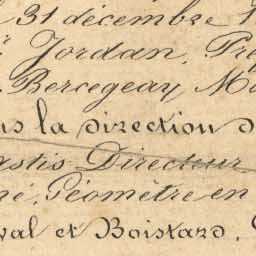 31 décembre 1
Jordan, Pré
Bercegeay Ma
ns la direction d
astis Directeur
né, Géomètre en
val et Boistard,